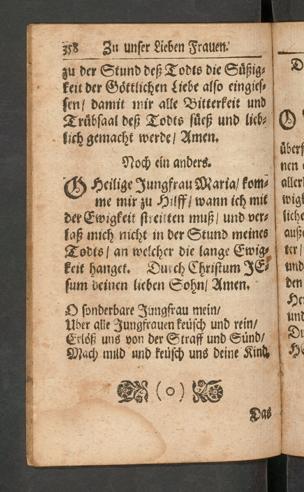 358 Zu unser Lieben Frauen.
zu der Stund deß Todts die Süßig-
keit der Göttlichen Liebe also eingies-
sen/ damit mir alle Bitterkeit und
Trübsaal deß Todts süeß und lieb-
lich gemacht werde/ Amen.
Noch ein anders.
O Heilige Jungfrau Maria/ kom-
me mir zu Hilff/ wann ich mit
der Ewigkeit streitten muß/ und ver-
laß mich nicht in der Stund meines
Todts/ an welcher die lange Ewig-
keit hanget. Durch Christum JE-
sum deinen lieben Sohn/ Amen.
O sonderbare Jungfrau mein/
Uber alle Jungfrauen keüsch und rein/
Erlöß uns von der Straff und Sünd/
Mach mild und keüsch uns deine Kind.
(o)
Das